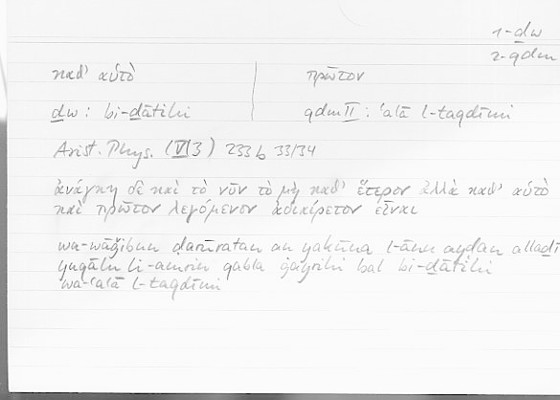 1-ḏw
2-qdm
καθ' αὑτὸ | πρῶτον
ḏw: bi-ḏātihi | qdm II: ʿalā l-taqdīmi
Arist. Phys. (VI 3) 233b 33/34
ἀνάγκη δὲ καὶ τὸ νῦν τὸ μὴ καθ' ἕτερον ἀλλὰ καθ' αὑτὸ
καὶ πρῶτον λεγόμενον ἀδιαίρετον εἶναι
wa-wāǧibun ḍarūratan an yakūna l-ānu ayḍan allaḏī
yuqālu li-amrin qabla ġayrihi bal bi-ḏātihi
wa-ʿalā l-taqdīmi